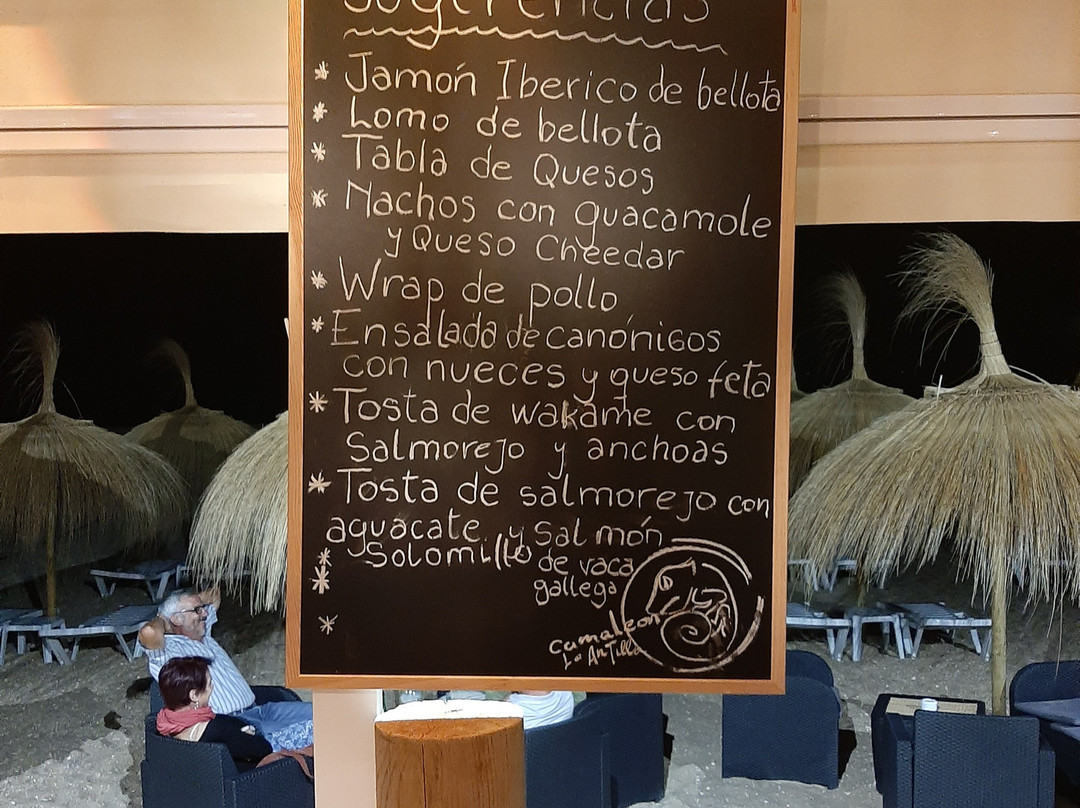 Sugerencias
* Jamón Iberico de bellota
* Lomo de bellota
* Tabla de Quesos
* Nachos con guacamole
y Queso Cheedar
* Wrap de pollo
* Ensalada de canónigos
con nueces y queso feta
* Tosta de wakame con
Salmorejo y anchoas
* Tosta de salmorejo con
aguacate y Salmón
* Solomillo de vaca
* gallega
*
camaleon
La Antilla